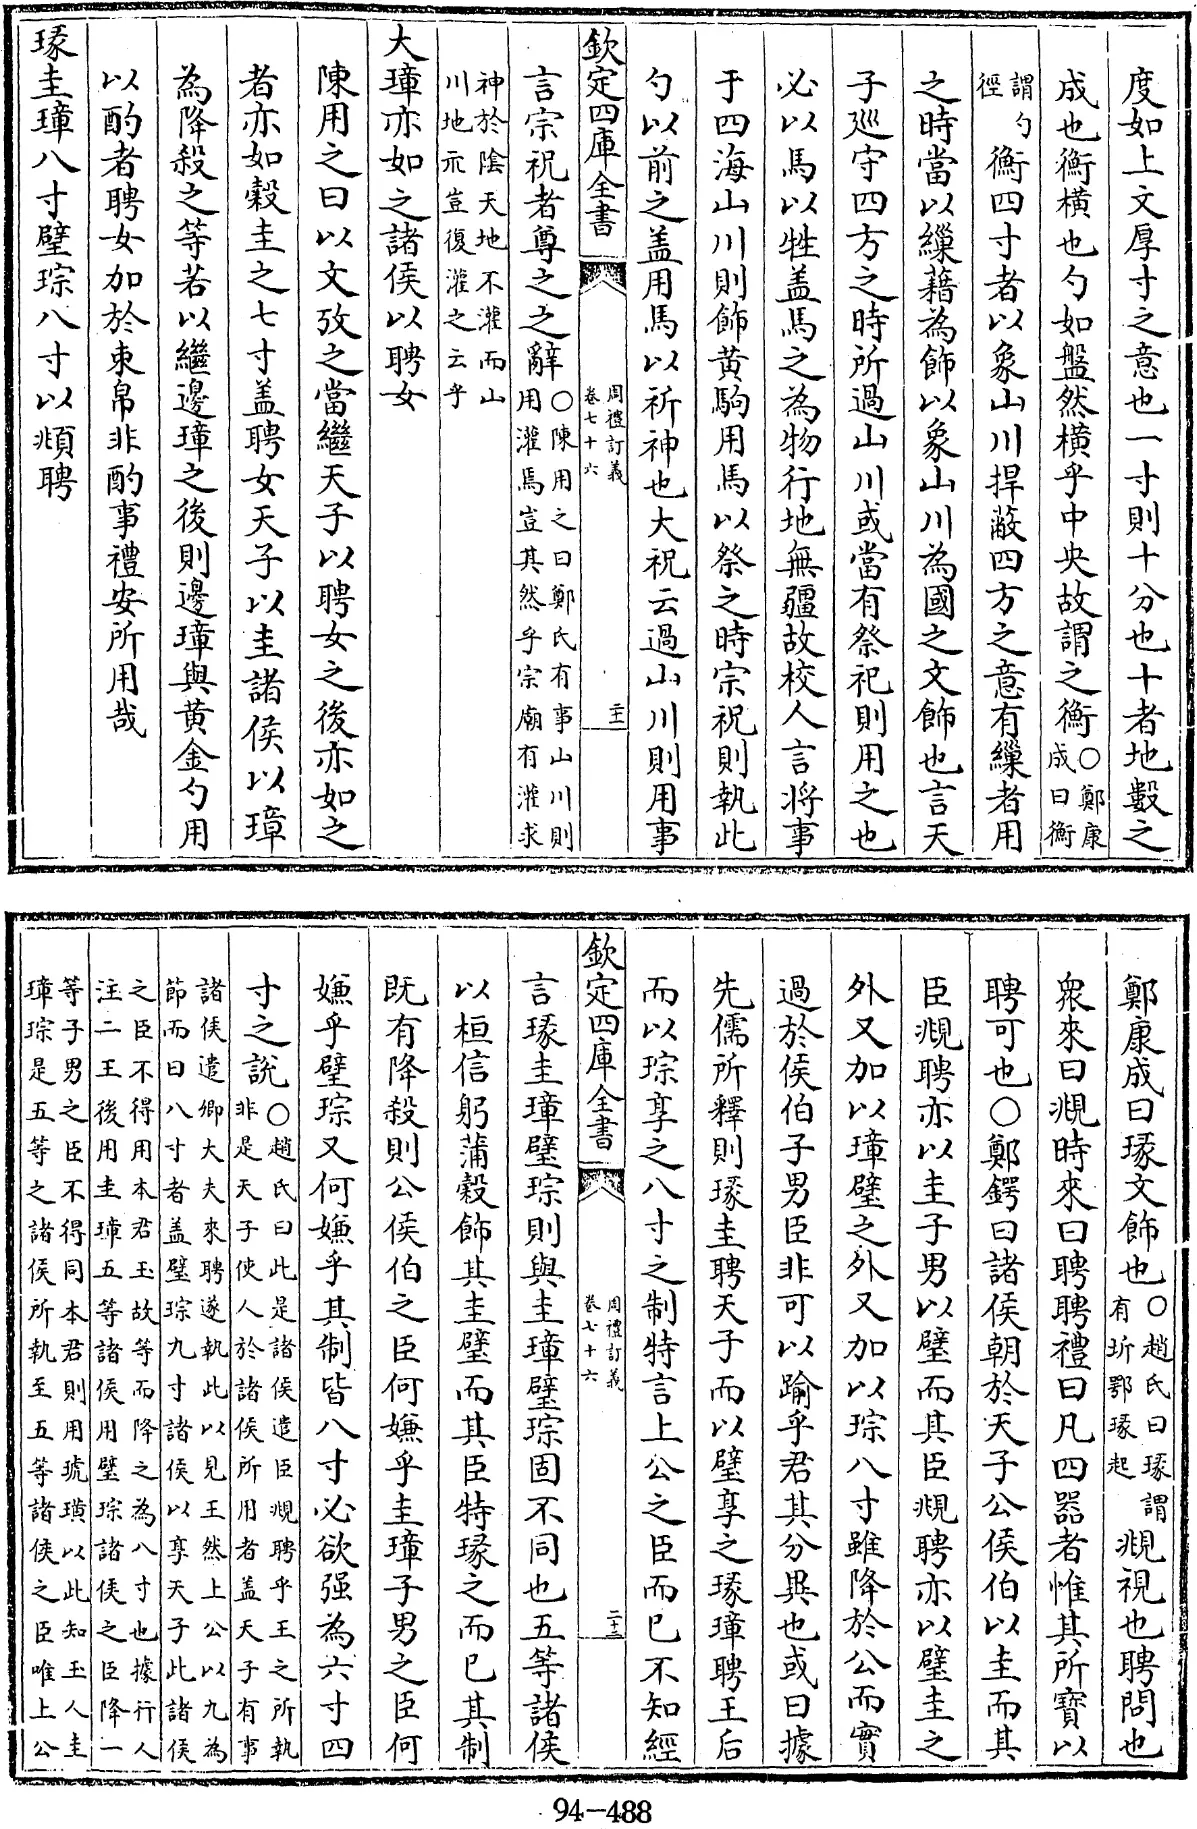 度如上文厚寸之意也一寸則十分也十者地數之
成也衡横也勺如盤然横乎中央故謂之衡○鄭康成曰衡
謂勺徑衡四寸者以象山川捍蔽四方之意有繅者用
之時當以繅藉為飾以象山川為國之文飾也言天
子廵守四方之時所過山川或當有祭祀則用之也
必以馬以牲盖馬之為物行地無疆故校人言將事
于四海山川則飾黄駒用馬以祭之時宗祝則執此
勺以前之盖用馬以祈神也大祝云過山川則用事
欽定四庫全書
周禮訂義
卷七十六
二十二
言宗祝者尊之之辭○陳用之曰鄭氏有事山川則用灌焉豈其然乎宗廟有灌求
神於陰天地不灌而山川地示豈復灌之云乎
大璋亦如之諸侯以聘女
陳用之曰以文攷之當繼天子以聘女之後亦如之
者亦如穀圭之七寸盖聘女天子以圭諸侯以璋
為降殺之等若以繼邊璋之後則邊璋與黄金勺用
以酌者聘女加於束帛非酌事禮安所用哉
瑑圭璋八寸璧琮八寸以頫聘
鄭康成曰瑑文飾也○趙氏曰瑑謂有圻鄂瑑起覜視也聘問也
衆來曰覜時來曰聘聘禮曰凡四器者惟其所寶以
聘可也○鄭鍔曰諸侯朝於天子公侯伯以圭而其
臣覜聘亦以圭子男以璧而其臣覜聘亦以璧圭之
外又加以璋璧之外又加以琮八寸雖降於公而實
過於侯伯子男臣非可以踰乎君其分異也或曰據
先儒所釋則瑑圭聘天子而以璧享之瑑璋聘王后
而以琮享之八寸之制特言上公之臣而已不知經
欽定四庫全書
周禮訂義
卷七十六
二十三
言瑑圭璋璧琮則與圭璋璧琮固不同也五等諸侯
以桓信躬蒲穀飾其圭璧而其臣特瑑之而已其制
既有降殺則公侯伯之臣何嫌乎圭璋子男之臣何
嫌乎璧琮又何嫌乎其制皆八寸必欲强為六寸四
寸之說○趙氏曰此是諸侯遣臣覜聘乎王之所執非是天子使人於諸侯所用者盖天子有事
諸侯遣卿大夫來聘遂執此以見王然上公以九為節而曰八寸者盖璧琮九寸諸侯以享天子此諸侯
之臣不得用本君玉故等而降之為八寸也據行人注二王後用圭璋五等諸侯用璧琮諸侯之臣降一
等子男之臣不得同本君則用琥璜以此知玉人圭璋琮是五等之諸侯所執至五等諸侯之臣唯上公
94-488